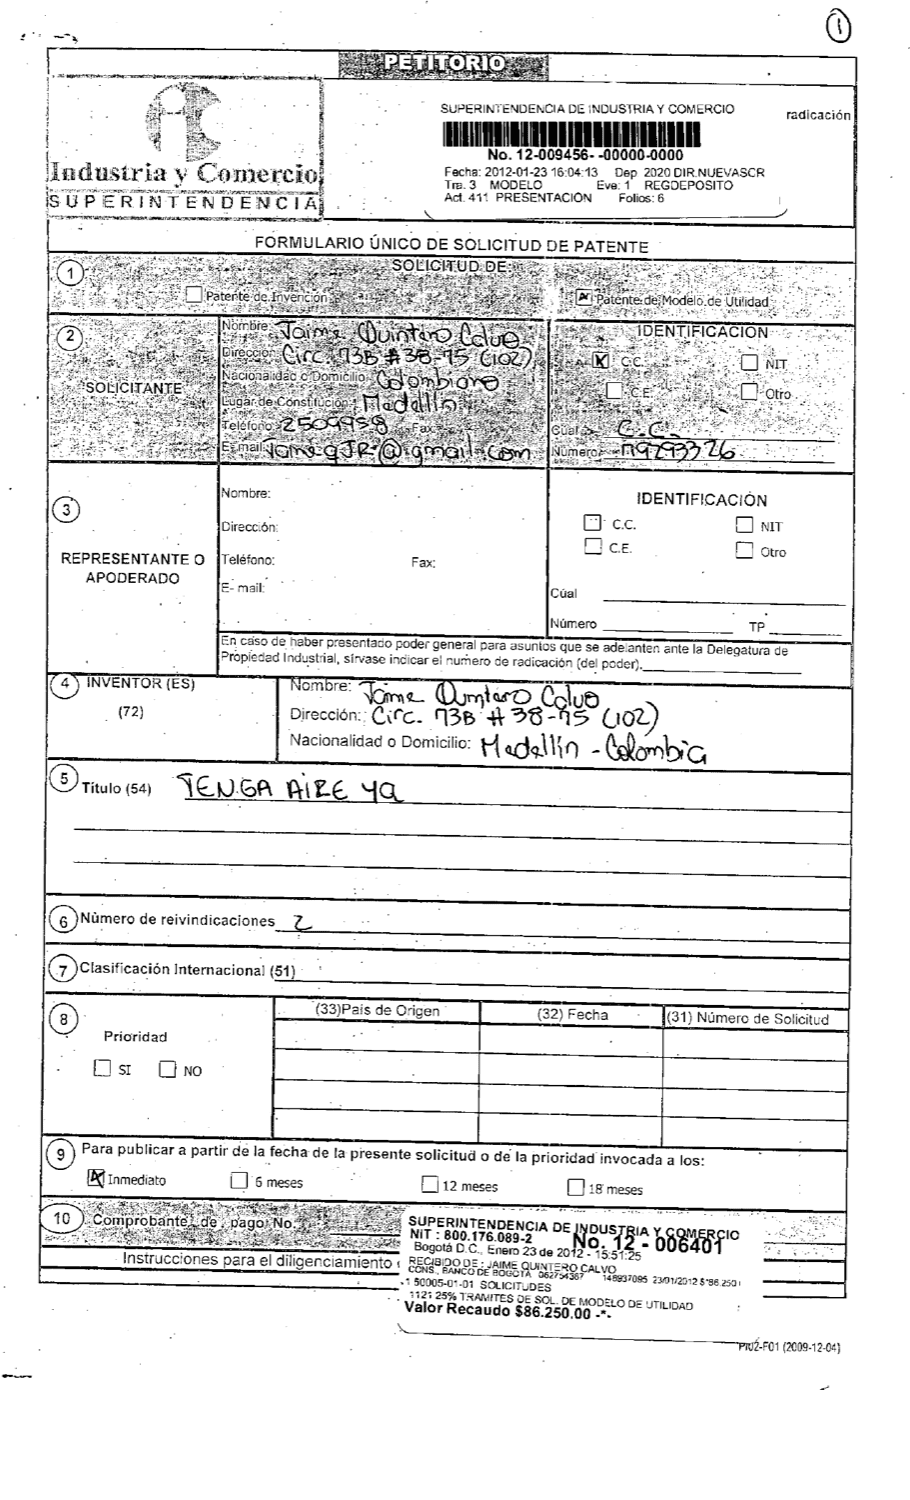 1
PETITORIO
SUPERINTENDENCIA DE INDUSTRIA Y COMERCIO
radicación
No. 12-009456- -00000-0000
Fecha: 2012-01-23 16:04:13 Dep 2020 DIR.NUEVASCR
Tra. 3 MODELO Eve: 1 REGDEPOSITO
Act. 411 PRESENTACION Folios: 6
Industria y Comercio
SUPERINTENDENCIA
FORMULARIO ÚNICO DE SOLICITUD DE PATENTE
1 SOLICITUD DE:
Patente de Invención
X Patente de Modelo de Utilidad
2
SOLICITANTE
Nombre: Jaime Quintero Calvo
Dirección: Circ. 73B # 38-75 (102)
Nacionalidad o Domicilio: Colombiano
Lugar de Constitución: Medellín
Teléfono: 2509958 Fax:
E-mail: Jaime.qJR.@gmail.com
IDENTIFICACIÓN
X C.C. NIT
C.E. Otro
Cual C.C.
Número 79293326
3
REPRESENTANTE O
APODERADO
Nombre:
Dirección:
Teléfono: Fax:
E- mail:
IDENTIFICACIÓN
C.C. NIT
C.E. Otro
Cúal
Número TP
En caso de haber presentado poder general para asuntos que se adelanten ante la Delegatura de
Propiedad Industrial, sírvase indicar el numero de radicación (del poder).
4 INVENTOR (ES)
(72)
Nombre: Jaime Quintero Calvo
Dirección: Circ. 73B # 38-75 (102)
Nacionalidad o Domicilio: Medellín - Colombia
5 Título (54) TENGA AIRE YA
6 Número de reivindicaciones 2
7 Clasificación Internacional (51)
8
Prioridad
SI NO
(33)País de Origen (32) Fecha (31) Número de Solicitud
9 Para publicar a partir de la fecha de la presente solicitud o de la prioridad invocada a los:
X Inmediato 6 meses 12 meses 18 meses
10 Comprobante de pago No.
Instrucciones para el diligenciamiento
SUPERINTENDENCIA DE INDUSTRIA Y COMERCIO
NIT : 800.176.089-2 No. 12 - 006401
Bogotá D.C., Enero 23 de 2012 - 15:51:25
RECIBIDO DE : JAIME QUINTERO CALVO
CONS., BANCO DE BOGOTA 062754387 148937095 23/01/2012 $*86.250
1 50005-01-01 SOLICITUDES
1121 25% TRAMITES DE SOL. DE MODELO DE UTILIDAD
Valor Recaudo $86.250.00 -*-
PI02-F01 (2009-12-04)